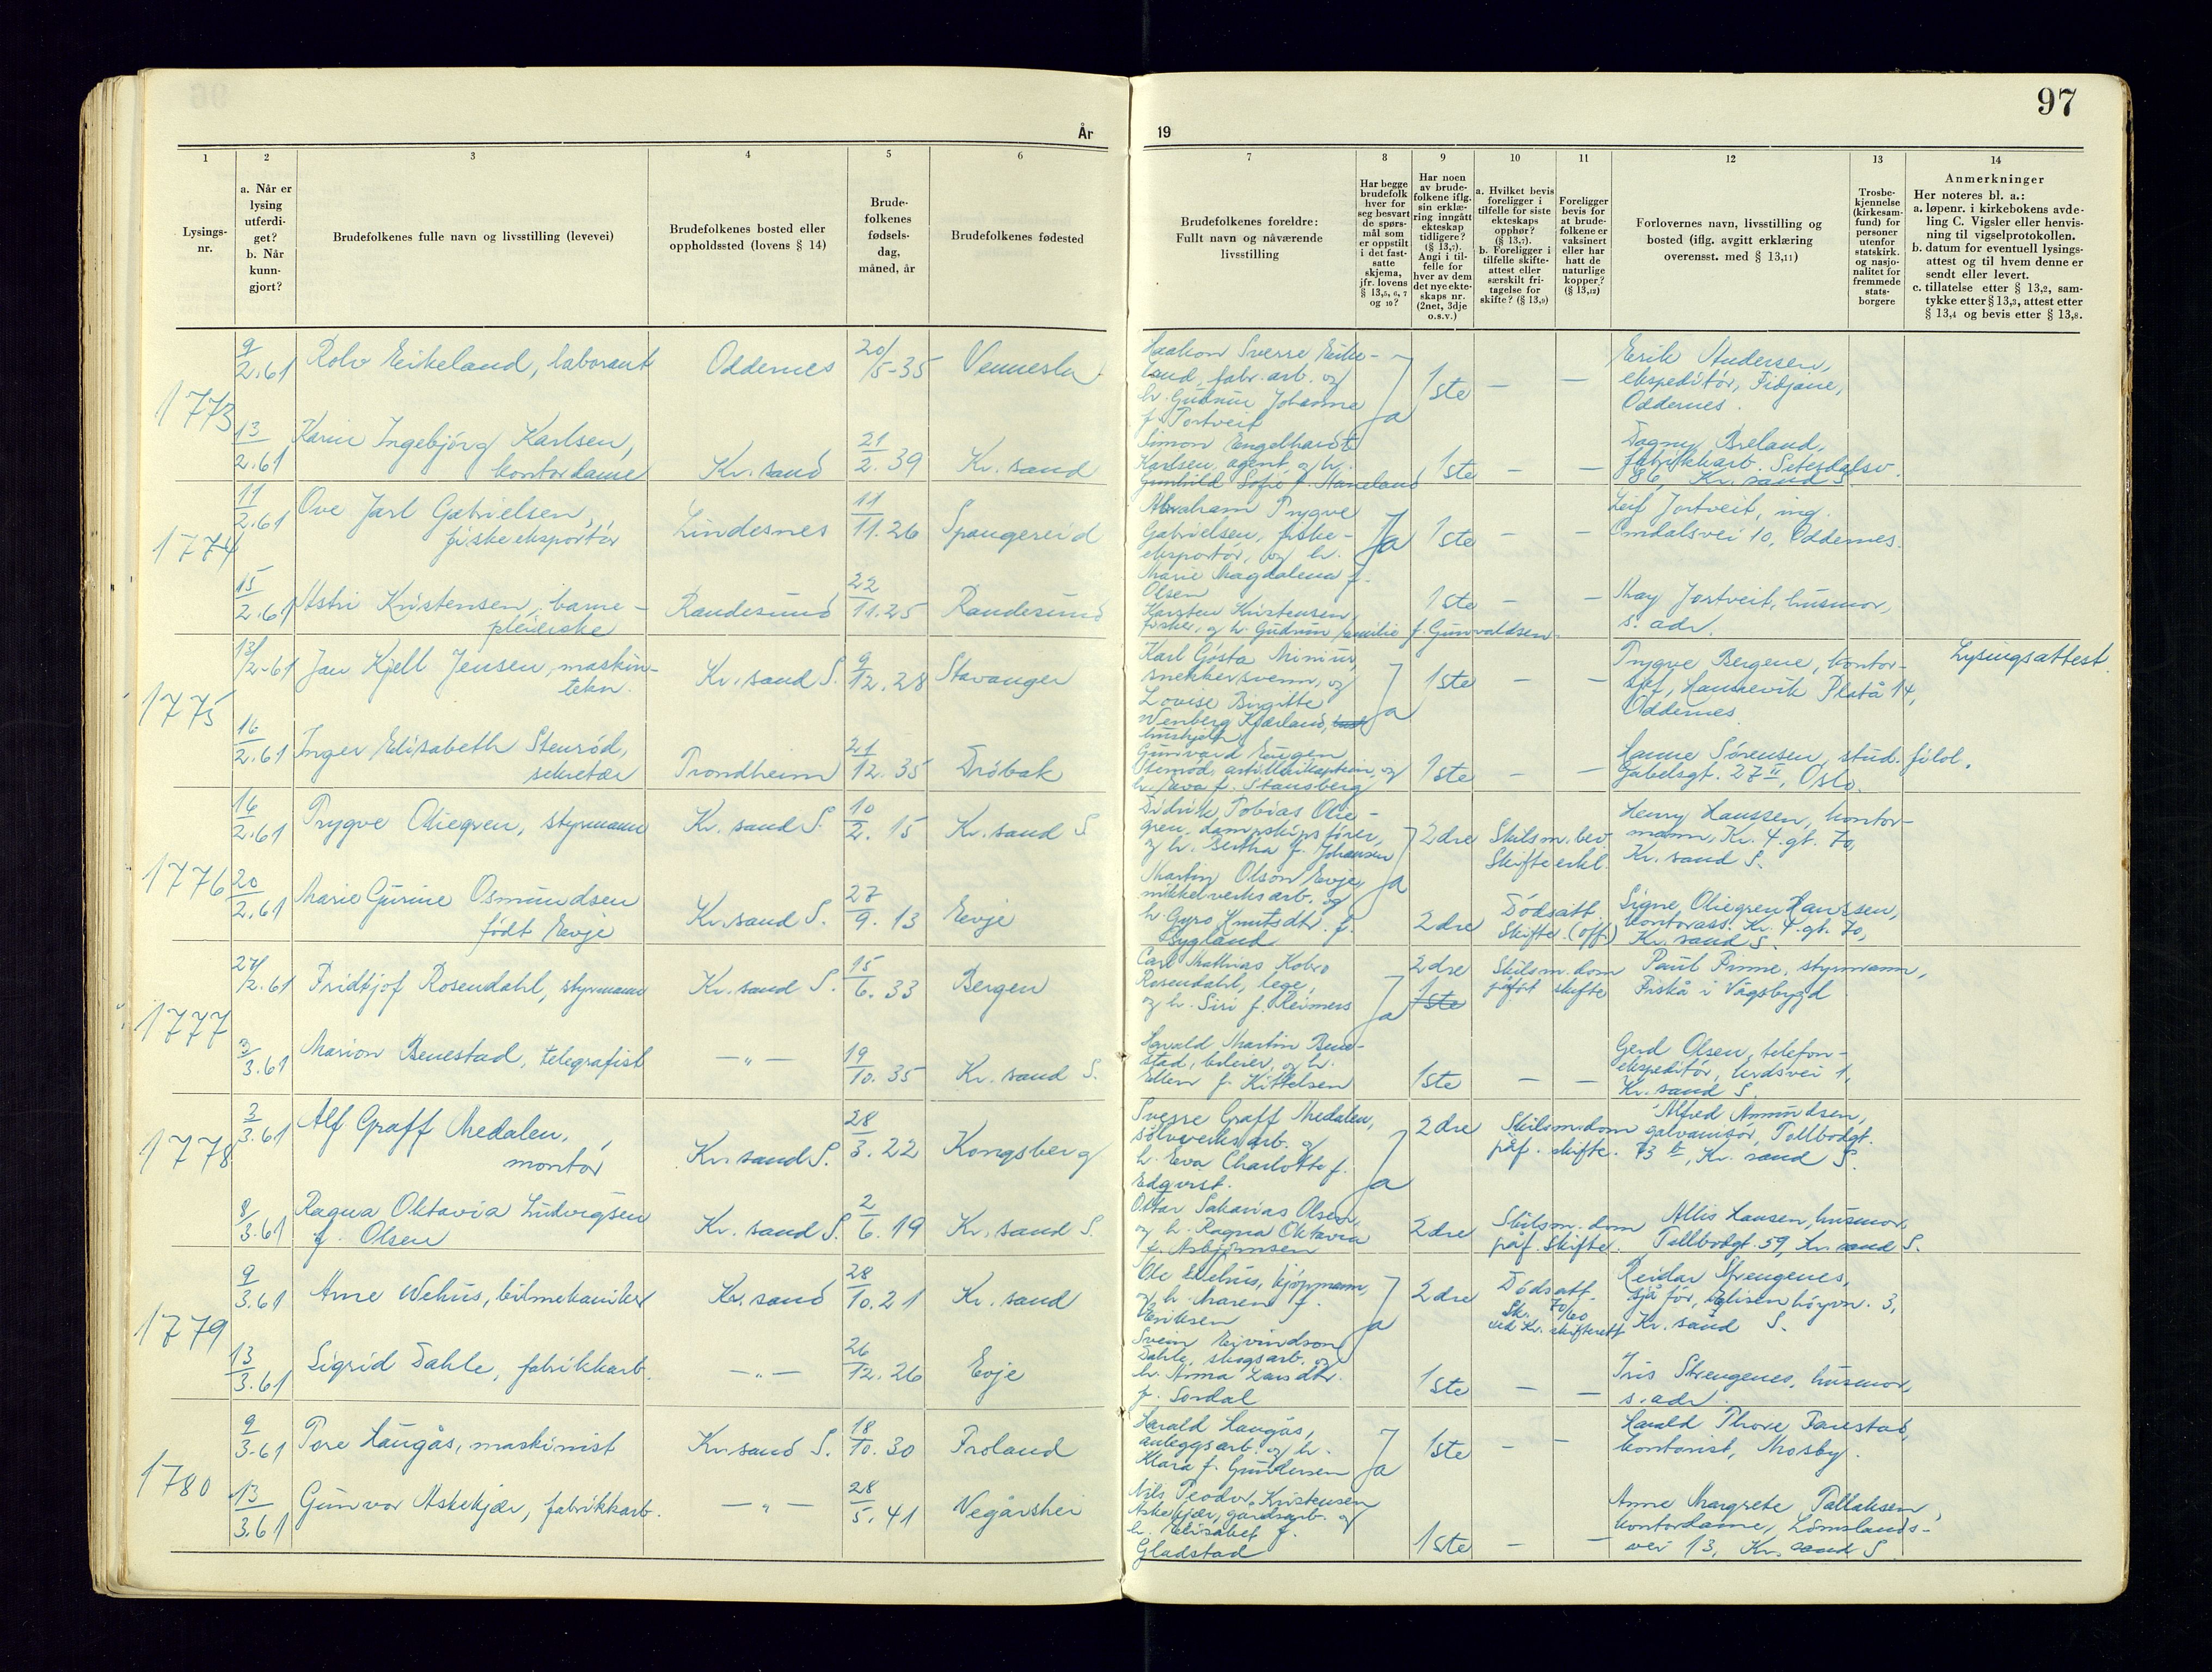 97
År
19
1
2
3
4
5
6
7
8
9
10
11
12
13
14
Lysings-
nr.
a. Når er
lysing
utferdi-
get?
b. Når
kunn-
gjort?
Brudefolkenes fulle navn og livsstilling (levevei)
Brudefolkenes bosted eller
oppholdssted (lovens § 14)
Brude-
folkenes
fødsels-
dag,
måned, år
Brudefolkenes fødested
Brudefolkenes foreldre:
Fullt navn og nåværende
livsstilling
Har begge
brudefolk
hver for
seg besvart
de spørs-
mål som
er oppstilt
i det fast-
satte
skjema,
jfr. lovens
§ 13,5, 6, 7
og 10?
Har noen
av brude-
folkene iflg.
sin erklæ-
ring inngått
ekteskap
tidligere?
(§ 13,7).
Angi i til-
felle for
hver av dem
det nye ekte-
skaps nr.
(2net, 3dje
o.s.v.)
a. Hvilket bevis
foreligger i
tilfelle for siste
ekteskaps
opphør?
(§ 13,7).
b. Foreligger i
tilfelle skifte-
attest eller
særskilt fri-
tagelse for
skifte? (§ 13,9)
Foreligger
bevis for
at brude-
folkene er
vaksinert
eller har
hatt de
naturlige
kopper?
(§ 13,12)
Forlovernes navn, livsstilling og
bosted (iflg. avgitt erklæring
overensst. med § 13,11)
Trosbe-
kjennelse
(kirkesam-
fund) for
personer
utenfor
statskirk.
og nasjo-
nalitet for
fremmede
stats-
borgere
Anmerkninger
Her noteres bl. a.:
a. løpenr. i kirkebokens avde-
ling C. Vigsler eller henvis-
ning til vigselprotokollen.
b. datum for eventuell lysings-
attest og til hvem denne er
sendt eller levert.
c. tillatelse etter § 13,2, sam-
tykke etter § 13,3, attest etter
§ 13,4 og bevis etter § 13,8.
1773
9/2.61 Rolv Eikeland, laborant Oddernes 20/5-35 Vennesla
Haakon Sverre Eike-
land, fabr.arb. og
h. Gudrun Johanne
f. Tortveit
Ja 1ste — —
Erik Andersen,
ekspeditør, Fidjane,
Oddernes.
13/2.61 Karin Ingebjörg Karlsen,
kontordame Kr.sand 21/2.39 Kr.sand
Simon Engelhardt
Karlsen, agent, og h.
Gunhild Sofie f. Haneland
1ste — —
Dagny Breland,
fabrikkarb. Setesdalsv.
86, Kr.sand S.
1774
11/2.61 Ove Jarl Gabrielsen,
fiskeeksportör Lindesnes 11/11.26 Spangereid
Abraham Trygve
Gabrielsen, fiske-
eksportør, og h.
Marie Magdalena f.
Olsen
Ja 1ste — —
Leif Jortveit, ing.
Omdalsvei 10, Oddernes.
15/2.61 Astri Kristensen, barne-
pleierske Randesund 22/11.25 Randesund
Karsten Kristensen,
fisker, og h. Gudrun Emilie f. Gunvaldsen.
1ste — —
May Jortveit, husmor,
s. adr.
1775
13/2-61 Jan Kjell Jensen, maskin-
tekn. Kr.sand S. 9/12.28 Stavanger
Karl Gösta
snekkersvenn, og
Lovise Birgitte
Wenberg Kjærland,
hushjelp
Ja 1ste — —
Trygve Bergene, kontor-
sjef, Hannevik Platå 14,
Oddernes.
Lysingsattest
16/2.61 Inger Elisabeth Stenröd,
sekretær Trondheim 21/12.35 Dröbak
Gunvard Eugen
Stenröd, artillerikaptein, og
h. Eva f. Stansberg
1ste — —
Hanne Sörensen, stud. filol.
Gabelsgt. 27 II, Oslo.
1776
16/2.61 Trygve Oliegren, styrmann Kr.sand S. 10/2.15 Kr.sand S
Didrik Tobias Olie-
gren, dampskipsförer,
og h. Bertha f. Johansen
Ja 2dre Skilsm.bev
Skifteerkl.
Henry Hanssen, kontor-
mann, Kr. 4.gt. 70,
Kr.sand S.
20/2.61 Marie Gurine Osmundsen
födt Evje Kr.sand S. 27/9.13 Evje
Martin Olson Evje,
nikkelverksarb. og
h. Gyro Knutsdtr. f.
Bygland
2dre Dödsatt.
Skifte. (off)
Signe Oliegren Hanssen,
kontorass. Kr. 4.gt. 70,
Kr.sand S.
1777
27/2.61 Fridtjof Rosendahl, styrmann Kr.sand S. 15/6.33 Bergen
Carl Mathias Kobro
Rosendahl, lege,
og h. Siri f. Reimers
Ja 2dre 1ste Skilsm.dom
påfört skifte
Paul Finne, styrmann,
Fiskå i Vågsbygd
3/3.61 Marion Benestad, telegrafist —"— 19/10.35 Kr.sand S.
Harald Martin Bene-
stad, bokser, og h.
Ellen f. Kittelsen
1ste — —
Gerd Olsen, telefon-
ekspeditör, Lundsvei 1,
Kr.sand S.
1778
3/3.61 Alf Graff Medalen,
montör Kr.sand S. 28/3.22 Kongsberg
Sverre Graff Medalen,
sölvverksarb. og
h. Eva Charlotte f.
Edqvist.
Ja 2dre Skilsm.dom
påf. skifte.
Alfred Amundsen,
galvanisör, Tollbodgt.
73 b, Kr.sand S.
8/3.61 Ragna Oktavia Ludvigsen
f. Olsen Kr.sand S. 2/6.19 Kr.sand S.
Ottar Sakarias Olsen,
og h. Ragna Oktavia
f. Asbjörnsen
2dre Skilsm.dom
påf. skifte.
Allis Hansen, husmor,
Tollbodgt. 59, Kr.sand S.
1779
9/3.61 Arne Wehus, bilmekaniker Kr.sand 28/10.21 Kr.sand
Ole Wehus, kjöpmann,
og h. Maren f.
Eriksen
Ja 2dre Dödsatt.
Sk. 70/60
ved Kr. skifterett
Reidar Strengenes,
sjåför, Elisenhöyvn. 3,
Kr.sand S.
13/3.61 Sigrid Dahle, fabrikkarb. —"— 26/12.26 Evje
Svein Eivindson
Dahle, skogsarb. og
h. Anna Larsdtr.
f. Sordal
1ste — —
Iris Strengenes, husmor,
s. adr.
1780
9/3.61 Tore Haugås, maskinist Kr.sand S. 18/10.30 Froland
Harald Haugås,
anleggsarb. og h.
Klara f. Gundersen
Ja 1ste — —
Harald Thore Farestad,
kontorist, Mosby.
13/3.61 Gunvor Askekjær, fabrikkarb. —"— 28/5.41 Vegårshei
Nils Teodor Kristensen
Askekjær, gårdsarb. og
h. Elisabet f.
Gladstad
1ste — —
Anne Margrete Tallaksen
kontordame, Lömslands-
vei 13, Kr.sand S